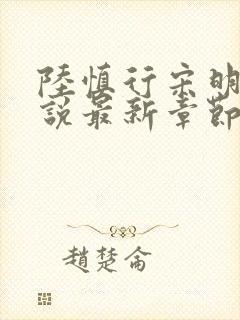 陸慎行宋明
說最新章節
趙楚侖